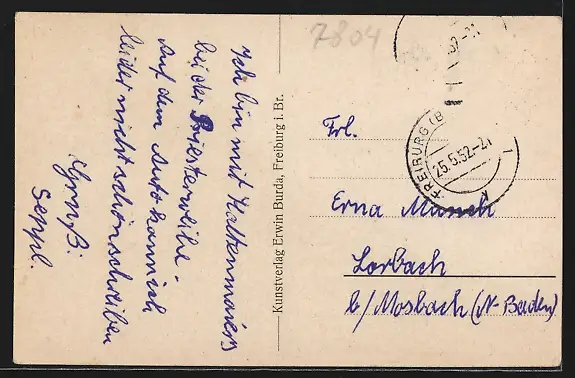 Ich bin mit Haltenmaiers
bei der Priesterweihe.
Auf dem Auto kann ich
leider nicht schön schreiben
Gruß:
Seppl.
Kunstverlag Erwin Burda, Freiburg i. Br.
7804
FREIBURG (B
25.5.52.-21
k
52.-21
Frl.
Erna Münch
Lorbach
b/Mosbach (N-Baden)